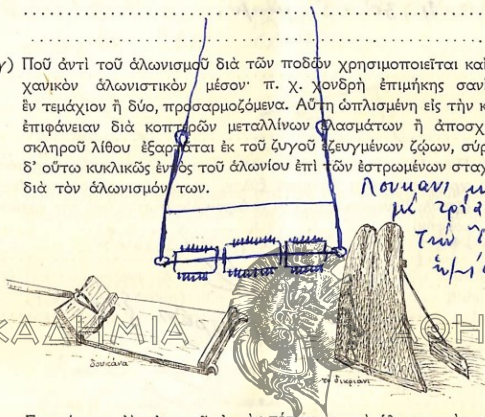 γ) Ποῦ ἀντὶ τοῦ ἁλωνισμοῦ διὰ τῶν ποδῶν χρησιμοποιεῖται καὶ
χανικὸν ἁλωνιστικὸν μέσον· π. χ. χονδρὴ ἐπιμήκης σανὶ
ἓν τεμάχιον ἢ δύο, προσαρμοζόμενα. Αὕτη ὡπλισμένη εἰς τὴν κ
ἐπιφάνειαν διὰ κοπτερῶν μεταλλίνων ἐλασμάτων ἢ ἀποσχ
σκληροῦ λίθου ἐξαρτᾶται ἐκ τοῦ ζυγοῦ ἐζευγμένων ζῴων, σύρ
δ' οὕτω κυκλικῶς ἐντὸς τοῦ ἁλωνίου ἐπὶ τῶν ἐστρωμένων σταχ
διὰ τὸν ἁλωνισμόν των.
Λουκανι
μὲ τρία
ΚΑΔΗΜΙΑ ΑΘΗ
δουκάνα
τὸ δικριάνι